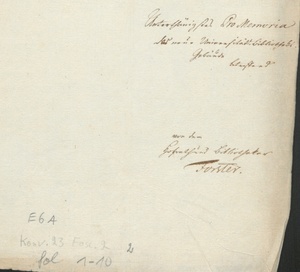 Unterthänigstes Pro Memoria
das neue Universitäts-Bibliotheks
Gebäude
betreffend
von dem
Bibliothekar
Forster.
E6A
2
fol 1-10